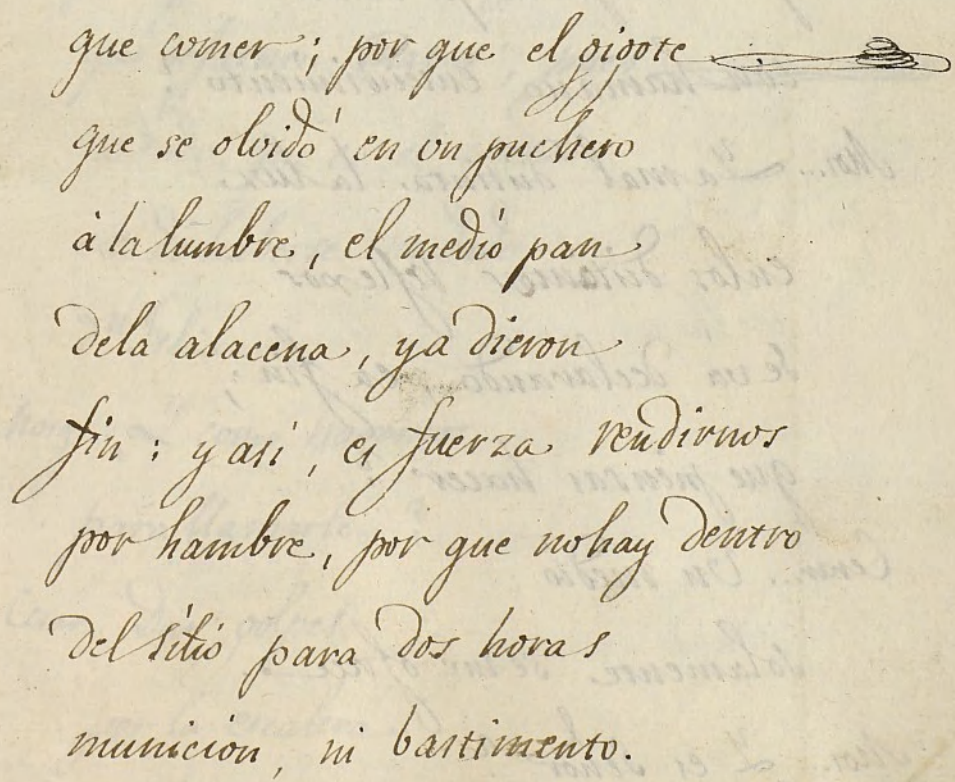 que comer; por que el gigote
que se olvidó en un puchero
à la lumbre, el medio pan
dela alacena, ya dieron
fin: y asi, es fuerza rendirnos
por hambre, por que no hay dentro
del sitio para dos horas
municion, ni bastimento.